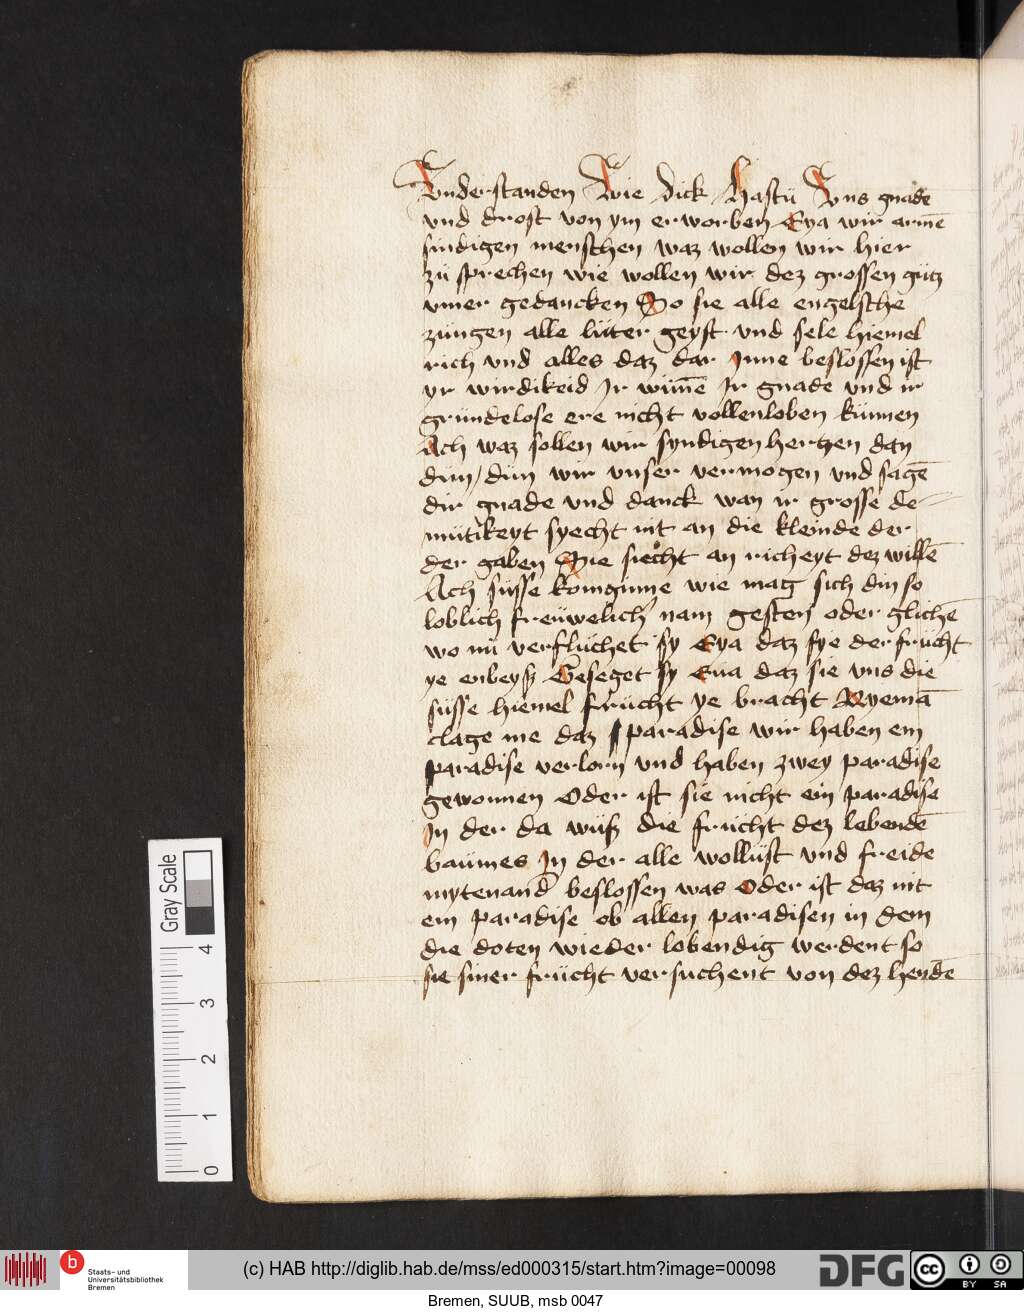 Vnderstanden Wie dick hastu Vns gnade
vnd drost von ym erworben Eya wir armē
sundigen menschen waz wollen wir hier
zü sprechen wie wollen wir dez grossen gütz
vmer gedancken So sie alle engelschē
züngen alle lüter geyst vnd sele hiemel
rich vnd alles daz dar Inne beslossen ist
yr wirdikeid Ir wūne Ir gnade vnd ir
gründelose ere nicht vollenloben künnen
Ach waz sollen wir syndigen hertzen dan
dün / dün wir vnser vermogen vnd sagē
dir gnade vnd danck wan ir grosse de
mütikeyt syecht nit an die kleinde der
der gaben Sie siecht an richeyt dez willē
Ach süsse konniginne wie mag sich din so
loblich freüwelich nam gesten oder glichē
wo nü verflüchet sy Eya daz sye der frücht
ye enbeysz Geseget sy Eua daz sie vns die
süsse hiemel frücht ye bracht Nyemā
clage me daz paradise wir haben ein
paradise verlorn vnd haben zwey paradise
gewonnen Oder ist sie nicht ein paradise
In der da wüsz die frücht dez lebendē
baümes In der alle wollüst vnd freide
mytenand beslossen was Oder ist daz nit
ein paradise ob allen paradisen in dem
die doten wieder lebendig werdent so
sie siner frücht versuchent von dez hende
Gray Scale
0 1 2 3 4
b
Staats- und
Universitätsbibliothek
Bremen
(c) HAB http://diglib.hab.de/mss/ed000315/start.htm?image=00098
DFG
cc BY SA
Bremen, SUUB, msb 0047